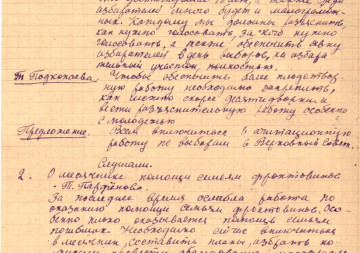 избирателей
ных. Каждому мы должны разъяснить
как нужно голосовать, за кого нужно
голосовать, а также обеспечить явку
избирателей в день выборов, на избира
тельный участок, полностью.
т Подкопаева. Чтобы обеспечить более плодотвор
ную работу необходимо закрепить,
как можно скорее десятидворки и
вести разъяснительную работу особенно
с молодежью
Предложение. Всем включиться в агитационную
работу по выборам в Верховный Совет.
Слушали.
2. О месячнике помощи семьям фронтовиков
- т. Парфенова.
За последнее время ослабла работа по
оказанию помощи семьям фронтовиков. Осо-
бенно плохо оказывается помощь семьям
погибших. Необходимо сейчас включиться
в месячник, составить планы, избрать ко-